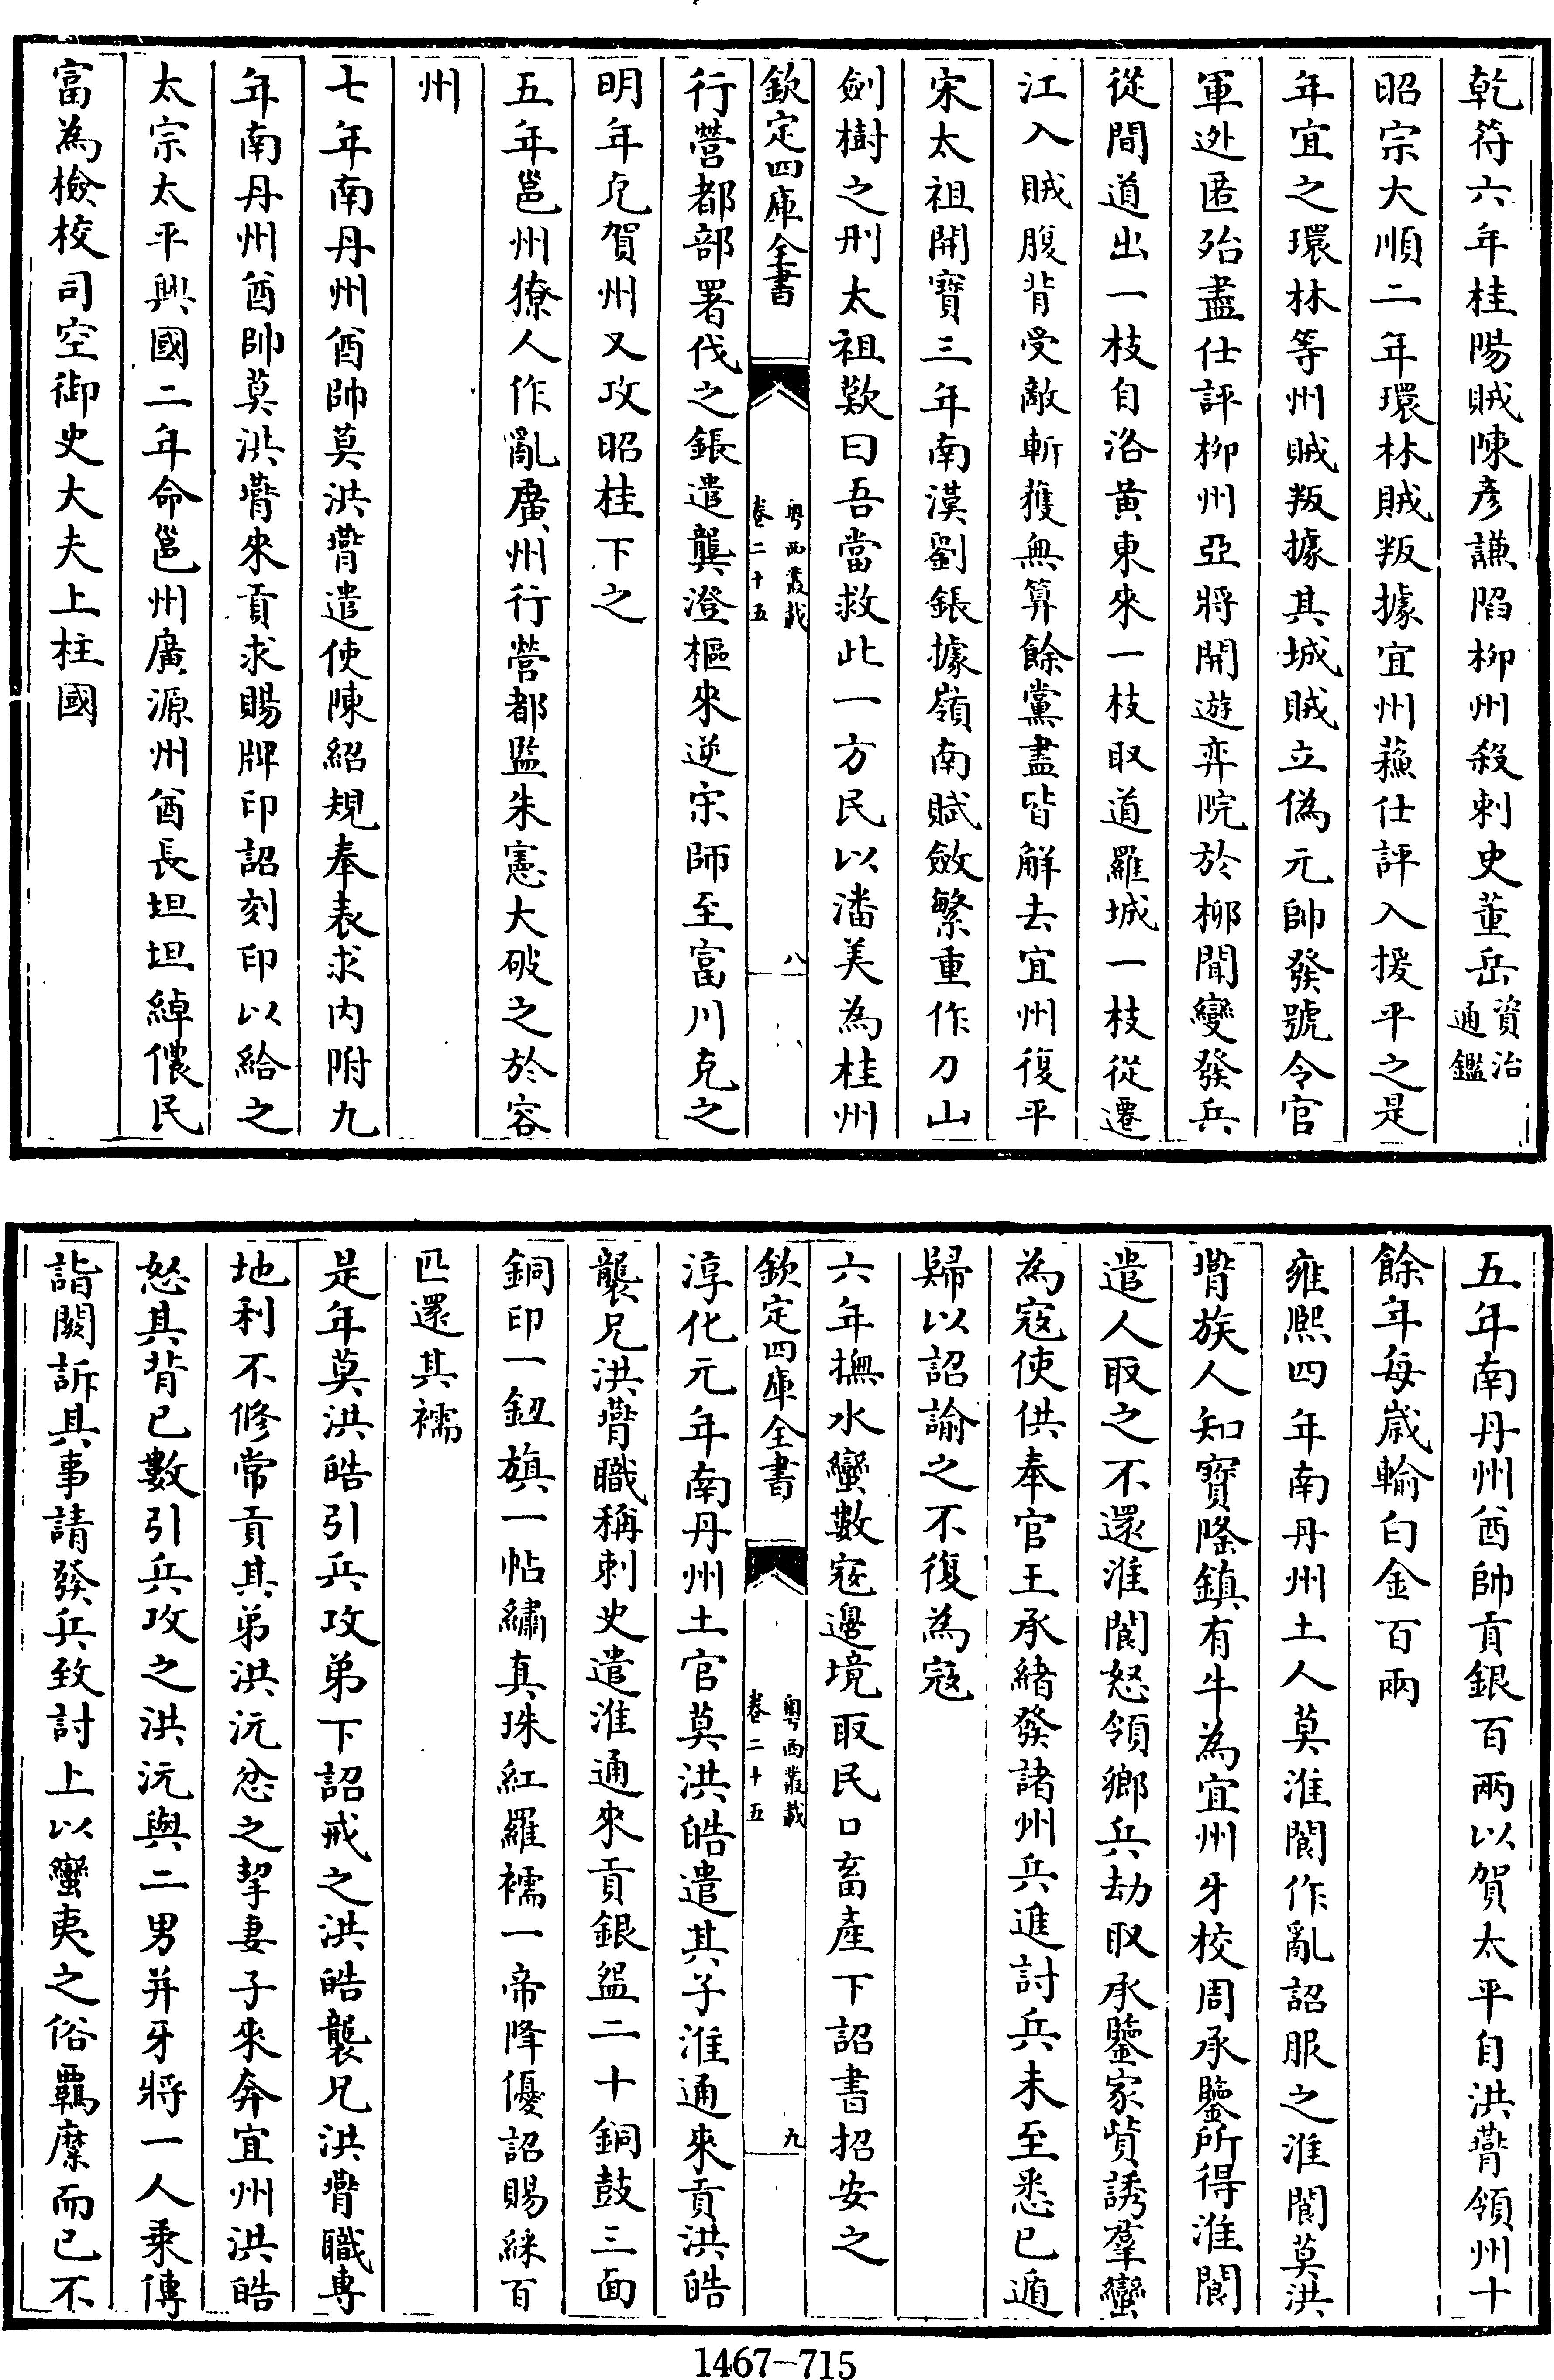 乾符六年桂陽賊陳彥謙陷柳州殺刺史董岳資治通鑑
昭宗大順二年環林賊叛據宜州蘓仕評入援平之是
年宜之環林等州賊叛據其城賊立偽元帥發號令官
軍迯匿殆盡仕評柳州亞將開遊弈院於柳聞變發兵
從間道出一枝自洛黄東來一枝取道羅城一枝從遷
江入賊腹背受敵斬獲無算餘黨盡皆解去宜州復平
宋太祖開寶三年南漢劉鋹據嶺南賦斂繁重作刀山
劍樹之刑太祖歎曰吾當救此一方民以潘美為桂州
欽定四庫全書
粤西叢載
卷二十五
八
行營都部署伐之鋹遣龔澄樞來逆宋師至富川克之
明年克賀州又攻昭桂下之
五年邕州獠人作亂廣州行營都監朱憲大破之於容
州
七年南丹州酋帥莫洪㬹遣使陳紹規奉表求内附九
年南丹州酋帥莫洪㬹來貢求賜牌印詔刻印以給之
太宗太平興國二年命邕州廣源州酋長坦坦綽儂民
富為檢校司空御史大夫上柱國
五年南丹州酋帥貢銀百兩以賀太平自洪㬹領州十
餘年每歲輸白金百兩
雍熙四年南丹州土人莫淮閬作亂詔服之淮閬莫洪
㬹族人知寶隆鎮有牛為宜州牙校周承鑒所得淮閬
遣人取之不還淮閬怒領鄉兵劫取承鑒家貲誘羣蠻
為寇使供奉官王承緒發諸州兵進討兵未至悉已遁
歸以詔諭之不復為寇
六年撫水蠻數寇邊境取民口畜產下詔書招安之
欽定四庫全書
粤西叢載
卷二十五
九
淳化元年南丹州土官莫洪皓遣其子淮通來貢洪皓
襲兄洪㬹職稱刺史遣淮通來貢銀盌二十銅鼓三面
銅印一鈕旗一帖繡真珠紅羅襦一帝降優詔賜綵百
匹還其襦
是年莫洪皓引兵攻弟下詔戒之洪皓襲兄洪㬹職專
地利不修常貢其弟洪沅忿之挈妻子來奔宜州洪皓
怒其背已數引兵攻之洪沅與二男并牙將一人乘傳
詣闕訴具事請發兵致討上以蠻夷之俗覊縻而已不
1467-715